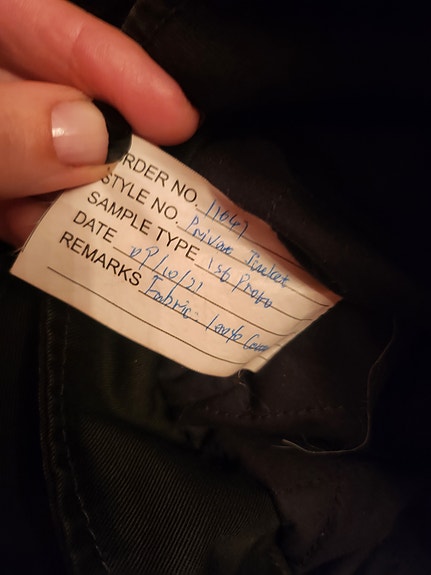 RDER NO. 11647
STYLE NO. Private Jacket
SAMPLE TYPE 1st Proto
DATE 09/10/21
REMARKS Fabric: 100%